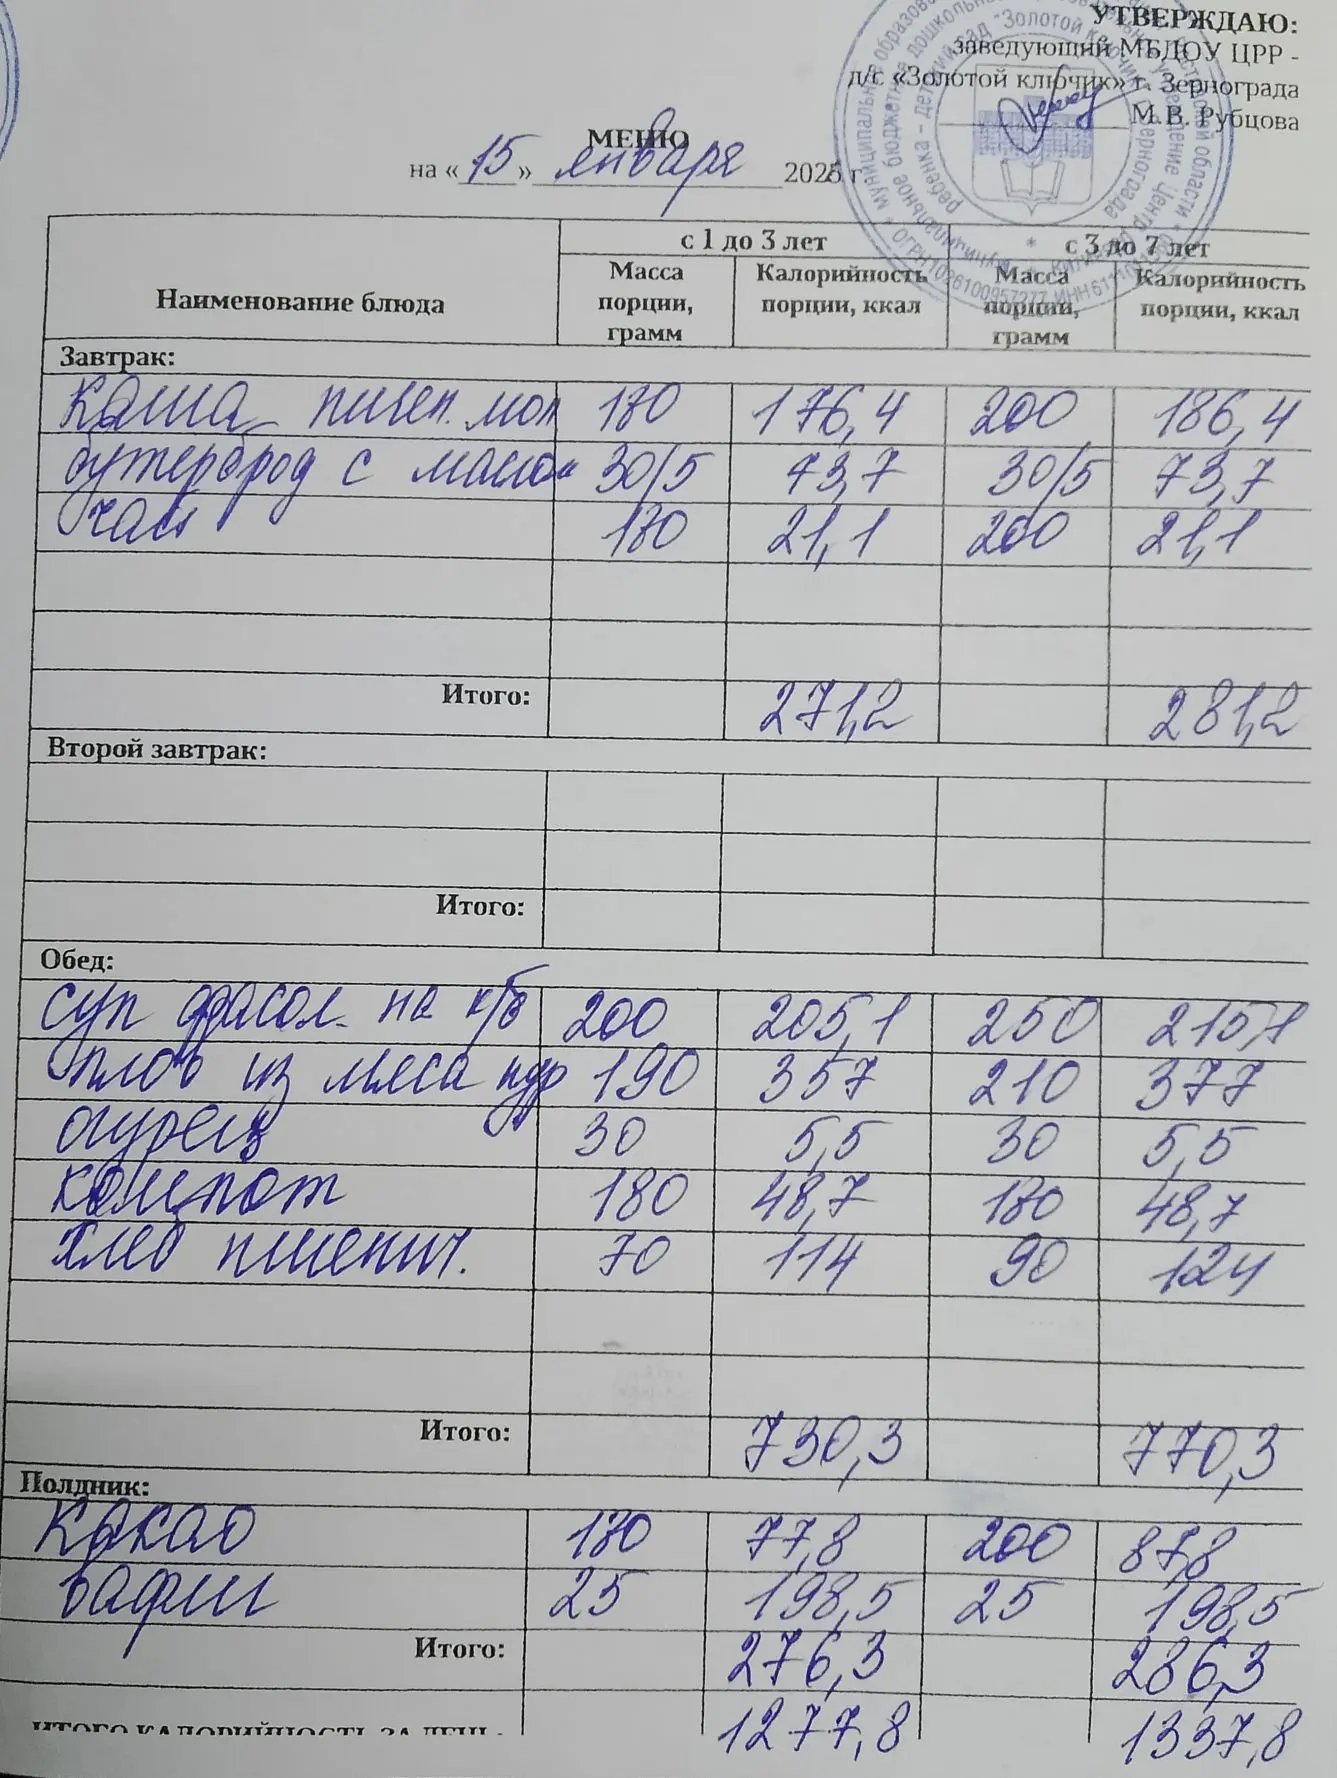 УТВЕРЖДАЮ:
заведующий МБДОУ ЦРР -
д/с «Золотой ключик» г. Зернограда
М.В. Рубцова
МЕНЮ
на « 15 » января 2025 г.
Наименование блюда с 1 до 3 лет с 3 до 7 лет
Масса порции, грамм Калорийность порции, ккал Масса порции, грамм Калорийность порции, ккал
Завтрак:
каша пшен. мол 180 176,4 200 186,4
бутерброд с маслом 30/5 73,7 30/5 73,7
чай 180 21,1 200 21,1
Итого: 271,2 281,2
Второй завтрак:
Итого:
Обед:
суп фасол. на к/б 200 205,1 250 215,1
плов из мяса кур 190 357 210 377
огурец 30 5,5 30 5,5
компот 180 48,7 180 48,7
хлеб пшенич. 70 114 90 124
Итого: 730,3 770,3
Полдник:
какао 180 77,8 200 87,8
вафли 25 198,5 25 198,5
Итого: 276,3 286,3
ИТОГО КАЛОРИЙНОСТЬ ЗА ДЕНЬ: 1277,8 1337,8